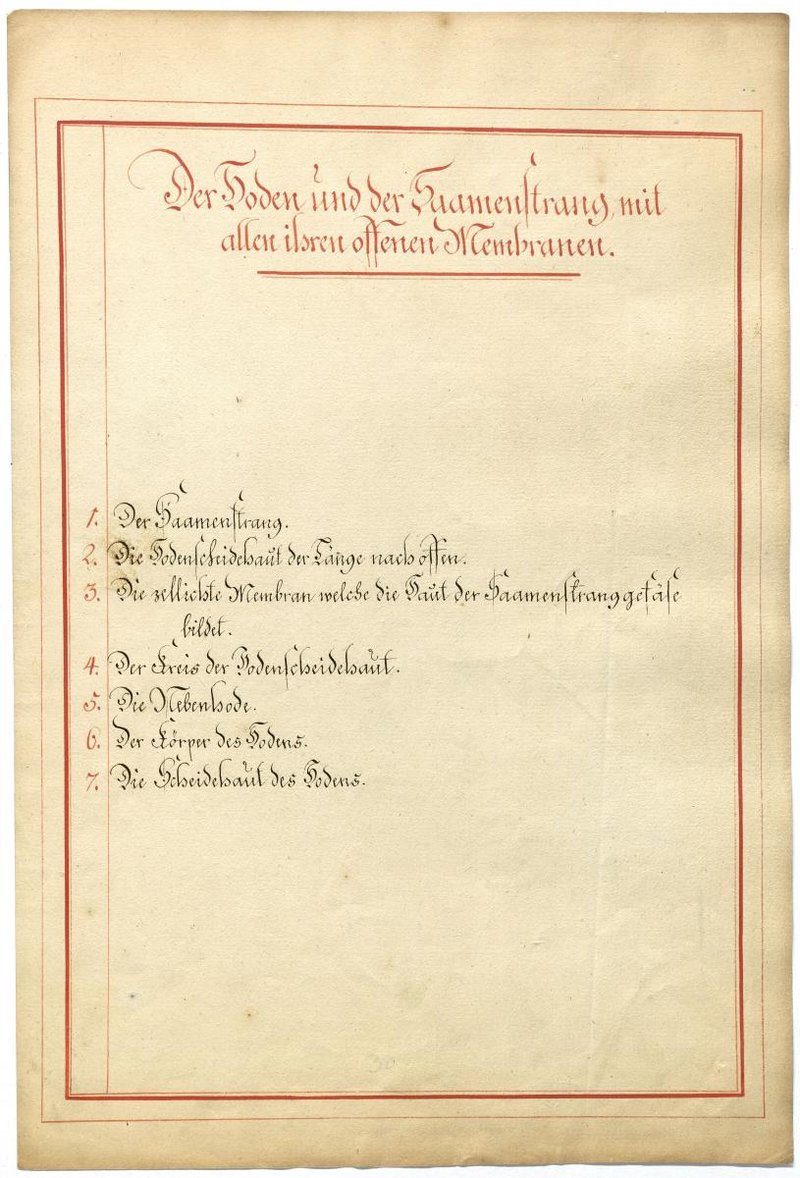 Der Hoden und der Saamenstrang, mit
allen ihren offenen Membranen.
1. Der Saamenstrang.
2. Die Hodenscheidehaut der Länge nach offen.
3. Die zellichte Membran welche die Haut der Saamenstranggefäse
bildet.
4. Der Kreis der Hodenscheidehaut.
5. Die Nebenhode.
6. Der Körper des Hodens.
7. Die Scheidehaut des Hodens.